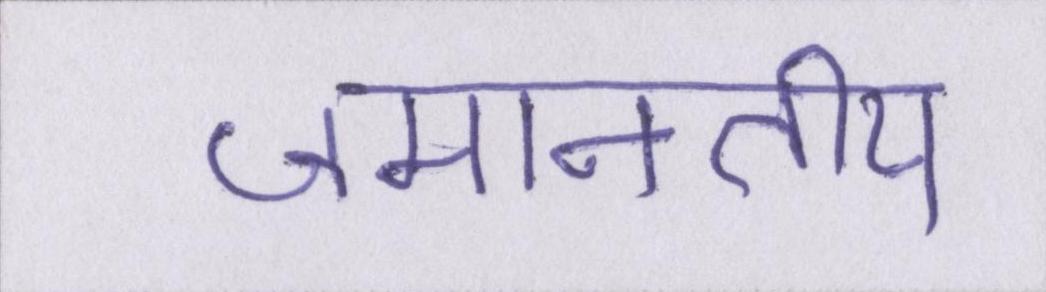 जमानतीय